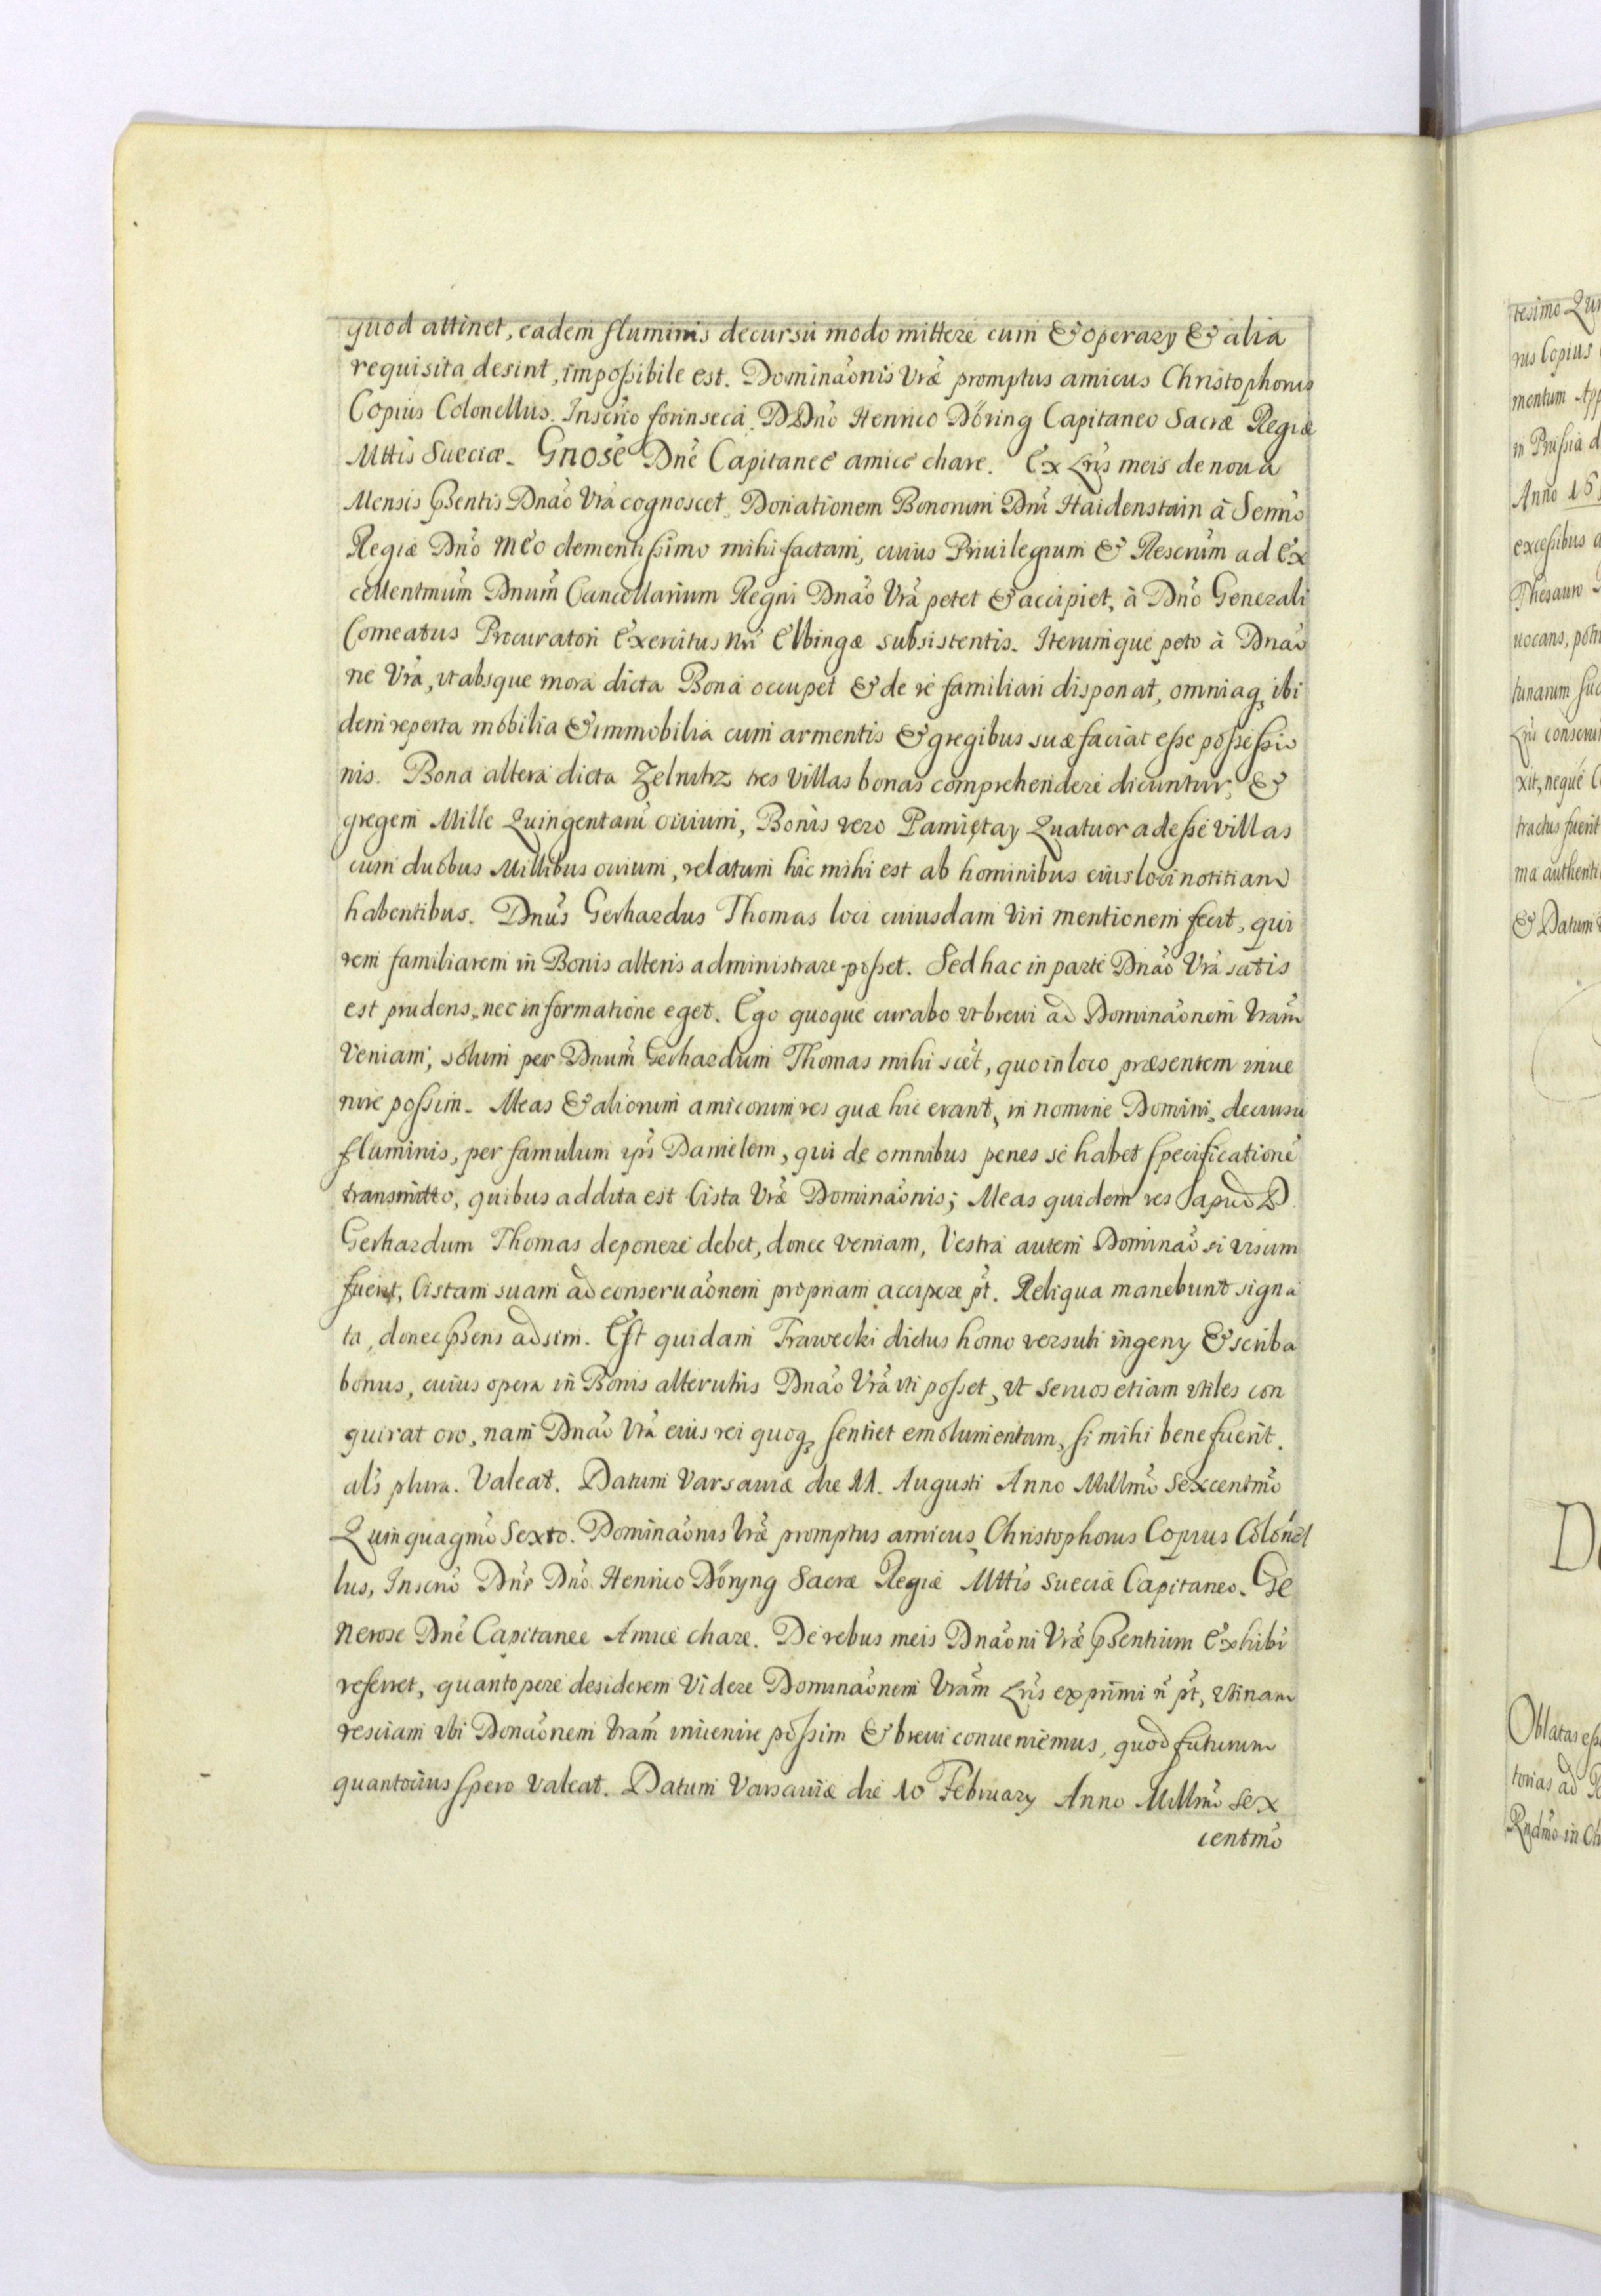 quod attinet, eadem fluminis decursu modo mittere cum & operary & alia
requisita desint, impossibile est. Dominaonis Vrae promptus amicus Christophorus
Copius Colonellus. Inscrio forinseca. D Dno Henrico Döring Capitaneo Sacrae Regiae
Mttis Sueciae. Gnose Dne Capitanee amice chare. Ex Lris meis de nona
Mensis psentis Dnao Vra cognoscet, Donationem Bonorum Dni Haidenstain à Sermo
Regiae Dno meo clementissimo mihi factam, cuius Priuilegium & Rescrum ad Ex
cellentmum Dnum Cancellarium Regni Dnao Vra petet & accipiet, à Dno Generali
Comeatus Procuratori Exercitus nri Elbingae subsistentis. Iterumque peto à Dnao
ne Vra, vt absque mora dicta Bona occupet & de re familiari disponat, omniaq, ibi
dem reperta mobilia & immobilia cum armentis & gregibus suae faciat esse possessio
nis. Bona altera dicta tres villas bonas comprehendere dicuntur, &
gregem Mille Quingentaru ouium, Bonis vero Pamiętay Quatuor adesse villas
cum duobus Millibus ouium, relatum hic mihi est ab hominibus eius loci notitiam
habentibus. Dnus Gerhardus Thomas loci cuiusdam Viri mentionem fecit, qui
rem familiarem in Bonis alteris administrare posset. Sed hac in parte Dnao Vra satis
est prudens, nec informatione eget. Ego quoque curabo vt breui ad Dominaonem Vram
Veniam, solum per Dnum Gerhardum Thomas mihi scet, quo in loco praesentem inue
nire possim. Meas & aliorum amicorum res quae hic erant, in nomine Domini, decursu
fluminis, per famulum ips Danielem, qui de omnibus penes se habet specificatione
transmitto, quibus addita est Cista Vrae Dominaonis; Meas quidem res apud D.
Gerhardum Thomas deponere debet, donec veniam, Vestra autem Dominao si visum
fuerit, Cistam suam ad conseruaonem propriam accipere pt. Reliqua manebunt signa
ta, donec psens adsim. Est quidam Trawecki dictus homo versuti ingeny & scriba
bonus, cuius opera in Bonis alterutris Dnao Vra vti posset, vt seruos etiam vtiles con
quirat oro, nam Dnao Vra eius rei quoq, sentiet emolumentum, si mihi bene fuerit.
als plura. Valeat. Datum Varsauiae die 11. Augusti Anno Millmo Sexcentmo
Quinquagmo Sexto. Dominaonis Vrae promptus amicus Christophorus Copius Colonel
lus, Inscrio Dnr Dno Henrico Döryng Sacrae Regiae Mttis Sueciae Capitaneo. Ge
nerose Dne Capitanee Amice chare. De rebus meis Dnaoni Vrae psentium Exhibr
referret, quantopere desiderem Videre Dominaonem Vram Lris exprimi n pt, Vtinam
resciam vbi Donaonem Vram inuenire possim & breui conueniemus, quod futurum
quantocius spero Valeat. Datum Varsauiae die 10 February Anno Millmo Sex
centmo
tesimo Qui
rus Copius
mentum App
in Prussia d
Anno 16
excessibus a
Thesauro
uocans, potu
tunarum suo
Lris conserui
xit, neque C
tractus fuerit
ma authenti
& Datum
D
Oblatas esse
torias ad R
Rndmo in Ch